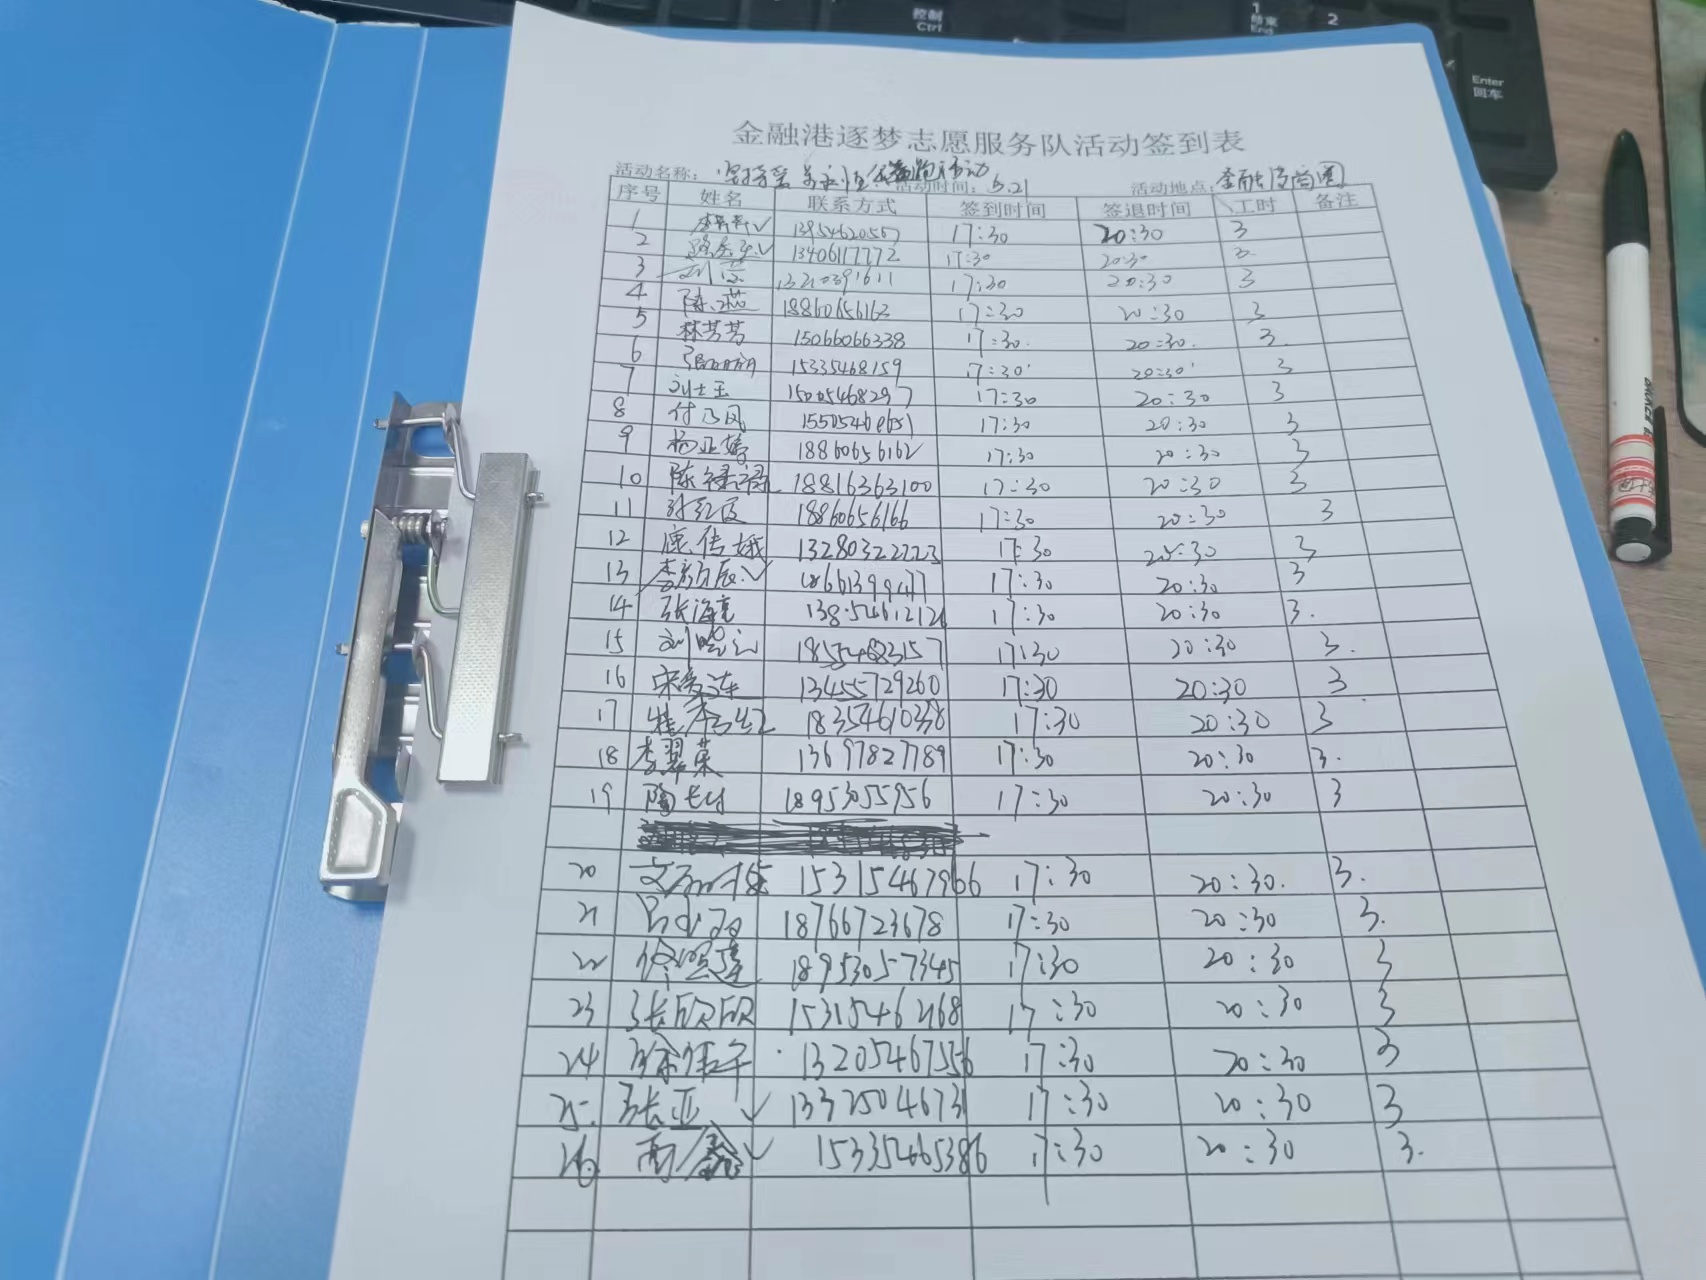 控制
Ctrl
1
结束
End
2
Enter
回车
金融港逐梦志愿服务队活动签到表
活动名称: 活动时间: 5.21 活动地点: 金融港商圈
序号 姓名 联系方式 签到时间 签退时间 工时 备注
1 13954620567 17:30 20:30 3
2 13406117772 17:30 20:30 3
3 刘慧 17:30 20:30 3
4 陈燕 18860656163 17:30 20:30 3
5 林芳芳 15066066338 17:30 20:30 3
6 15335468159 17:30 20:30 3
7 刘士玉 15005468297 17:30 20:30 3
8 付乃凤 17:30 20:30 3
9 杨亚婷 18860656162 17:30 20:30 3
10 陈禄禄 18816363100 17:30 20:30 3
11 18860656166 17:30 20:30 3
12 13280322223 17:30 20:30 3
13 18661399477 17:30 20:30 3
14 张海亮 13854612126 17:30 20:30 3
15 刘晓云 18554683157 17:30 20:30 3
16 13455729260 17:30 20:30 3
17 18354610338 17:30 20:30 3
18 李翠荣 13697827789 17:30 20:30 3
19 陶长付 18953055956 17:30 20:30 3
20 15315467966 17:30 20:30 3
21 18766723678 17:30 20:30 3
22 18953057345 17:30 20:30 3
23 张欣欣 15315462468 17:30 20:30 3
24 徐伟平 13205467556 17:30 20:30 3
25 张亚 13325046731 17:30 20:30 3
26 15335465386 17:30 20:30 3